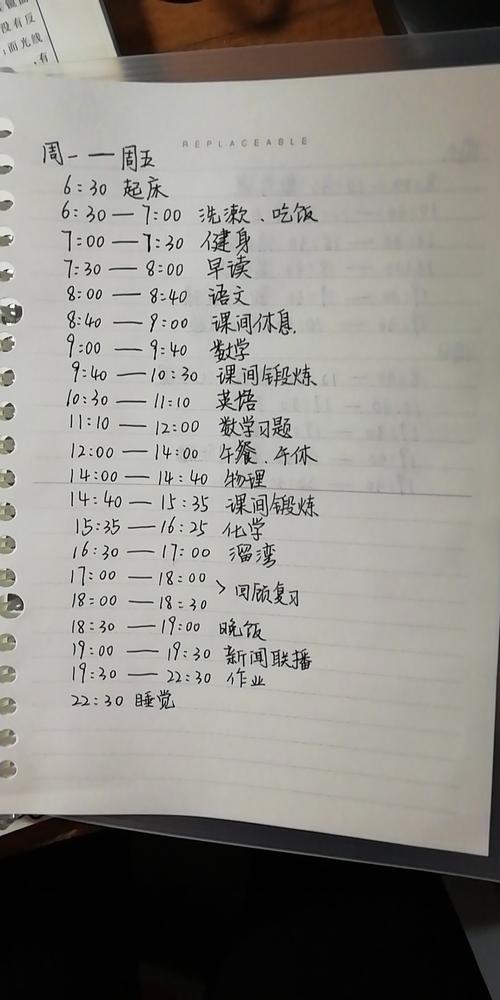 没有反
面光线
有
REPLACEABLE
周一 — 周五
6:30 起床
6:30 — 7:00 洗漱、吃饭
7:00 — 7:30 健身
7:30 — 8:00 早读
8:00 — 8:40 语文
8:40 — 9:00 课间休息.
9:00 — 9:40 数学
9:40 — 10:30 课间锻炼
10:30 — 11:10 英语
11:10 — 12:00 数学习题
12:00 — 14:00 午餐、午休
14:00 — 14:40 物理
14:40 — 15:35 课间锻炼
15:35 — 16:25 化学
16:30 — 17:00 溜湾
17:00 — 18:00
18:00 — 18:30 > 回顾复习
18:30 — 19:00 晚饭
19:00 — 19:30 新闻联播
19:30 — 22:30 作业
22:30 睡觉